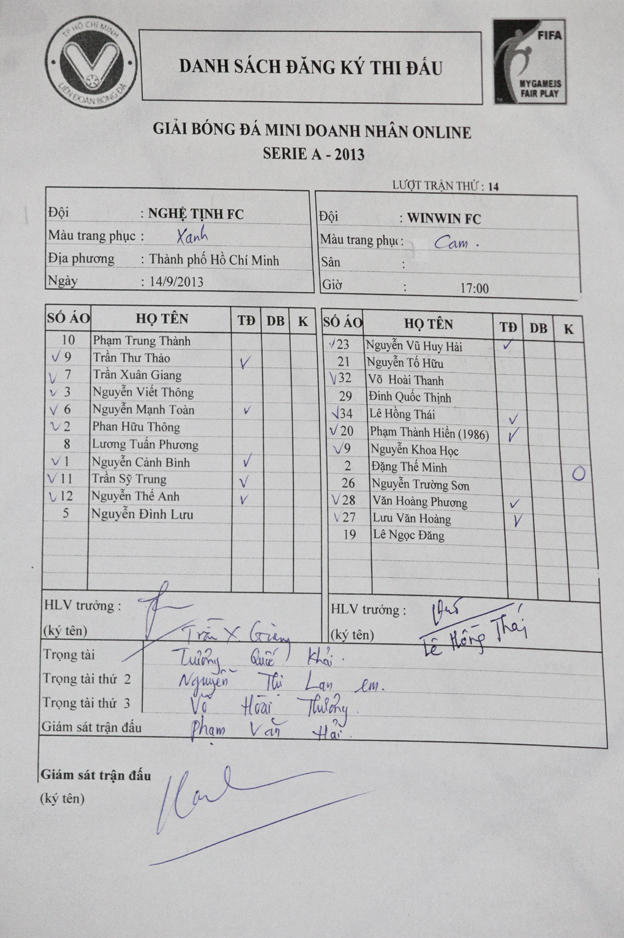 TP HỒ CHÍ MINH
LIÊN ĐOÀN BÓNG ĐÁ
DANH SÁCH ĐĂNG KÝ THI ĐẤU
FIFA
MYGAMEIS
FAIR PLAY
GIẢI BÓNG ĐÁ MINI DOANH NHÂN ONLINE
SERIE A - 2013
LƯỢT TRẬN THỨ : 14
Đội : NGHỆ TỊNH FC
Màu trang phục : Xanh
Địa phương : Thành phố Hồ Chí Minh
Ngày : 14/9/2013
Đội : WINWIN FC
Màu trang phục: Cam.
Sân :
Giờ : 17:00
SÓ ÁO HỌ TÊN TĐ DB K
10 Phạm Trung Thành
✓ 9 Trần Thư Thảo ✓
✓ 7 Trần Xuân Giang
✓ 3 Nguyễn Viết Thông
✓ 6 Nguyễn Mạnh Toàn ✓
✓ 2 Phan Hữu Thông
8 Lương Tuấn Phương
✓ 1 Nguyễn Cảnh Bình ✓
✓ 11 Trần Sỹ Trung ✓
✓ 12 Nguyễn Thế Anh ✓
5 Nguyễn Đình Lưu
SÓ ÁO HỌ TÊN TĐ DB K
✓ 23 Nguyễn Vũ Huy Hải ✓
21 Nguyễn Tố Hữu
✓ 32 Võ Hoài Thanh
29 Đinh Quốc Thịnh
✓ 34 Lê Hồng Thái ✓
✓ 20 Phạm Thành Hiển (1986) ✓
✓ 9 Nguyễn Khoa Học
2 Đặng Thế Minh O
26 Nguyễn Trường Sơn
✓ 28 Văn Hoàng Phương ✓
✓ 27 Lưu Văn Hoàng ✓
19 Lê Ngọc Đăng
HLV trưởng :
(ký tên) Trần X Giang
HLV trưởng :
(ký tên) Lê Hồng Thái
Trọng tài Tưởng Quốc Khải.
Trọng tài thứ 2 Nguyễn Thị Lan em.
Trọng tài thứ 3 Võ Hoài Thưởng.
Giám sát trận đấu Phạm Văn Hải.
Giám sát trận đấu
(ký tên)